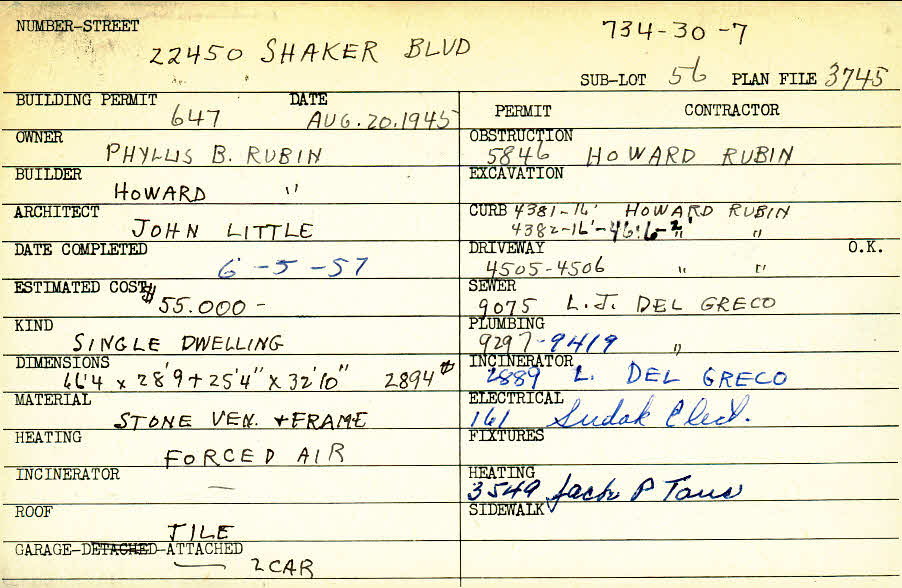 NUMBER-STREET 734-30-7
22450 SHAKER BLVD
SUB-LOT 56 PLAN FILE 3745
BUILDING PERMIT DATE
647 AUG. 20. 1945
OWNER
PHYLLIS B. RUBIN
BUILDER
HOWARD "
ARCHITECT
JOHN LITTLE
DATE COMPLETED
6-5-57
ESTIMATED COST
$55.000-
KIND
SINGLE DWELLING
DIMENSIONS
66'4 x 28'9 + 25'4" x 32'10" 2894
MATERIAL
STONE VEN. + FRAME
HEATING
FORCED AIR
INCINERATOR
—
ROOF
TILE
GARAGE-DETACHED-ATTACHED
2 CAR
PERMIT CONTRACTOR
OBSTRUCTION
5846 HOWARD RUBIN
EXCAVATION
CURB 4381-16' HOWARD RUBIN
4382-16'- " "
DRIVEWAY O.K.
4505-4506 " "
SEWER
9075 L.J. DEL GRECO
PLUMBING
9297-9419 "
INCINERATOR
2889 L. DEL GRECO
ELECTRICAL
161 Sudak Elect.
FIXTURES
HEATING
3549 Jack P
SIDEWALK